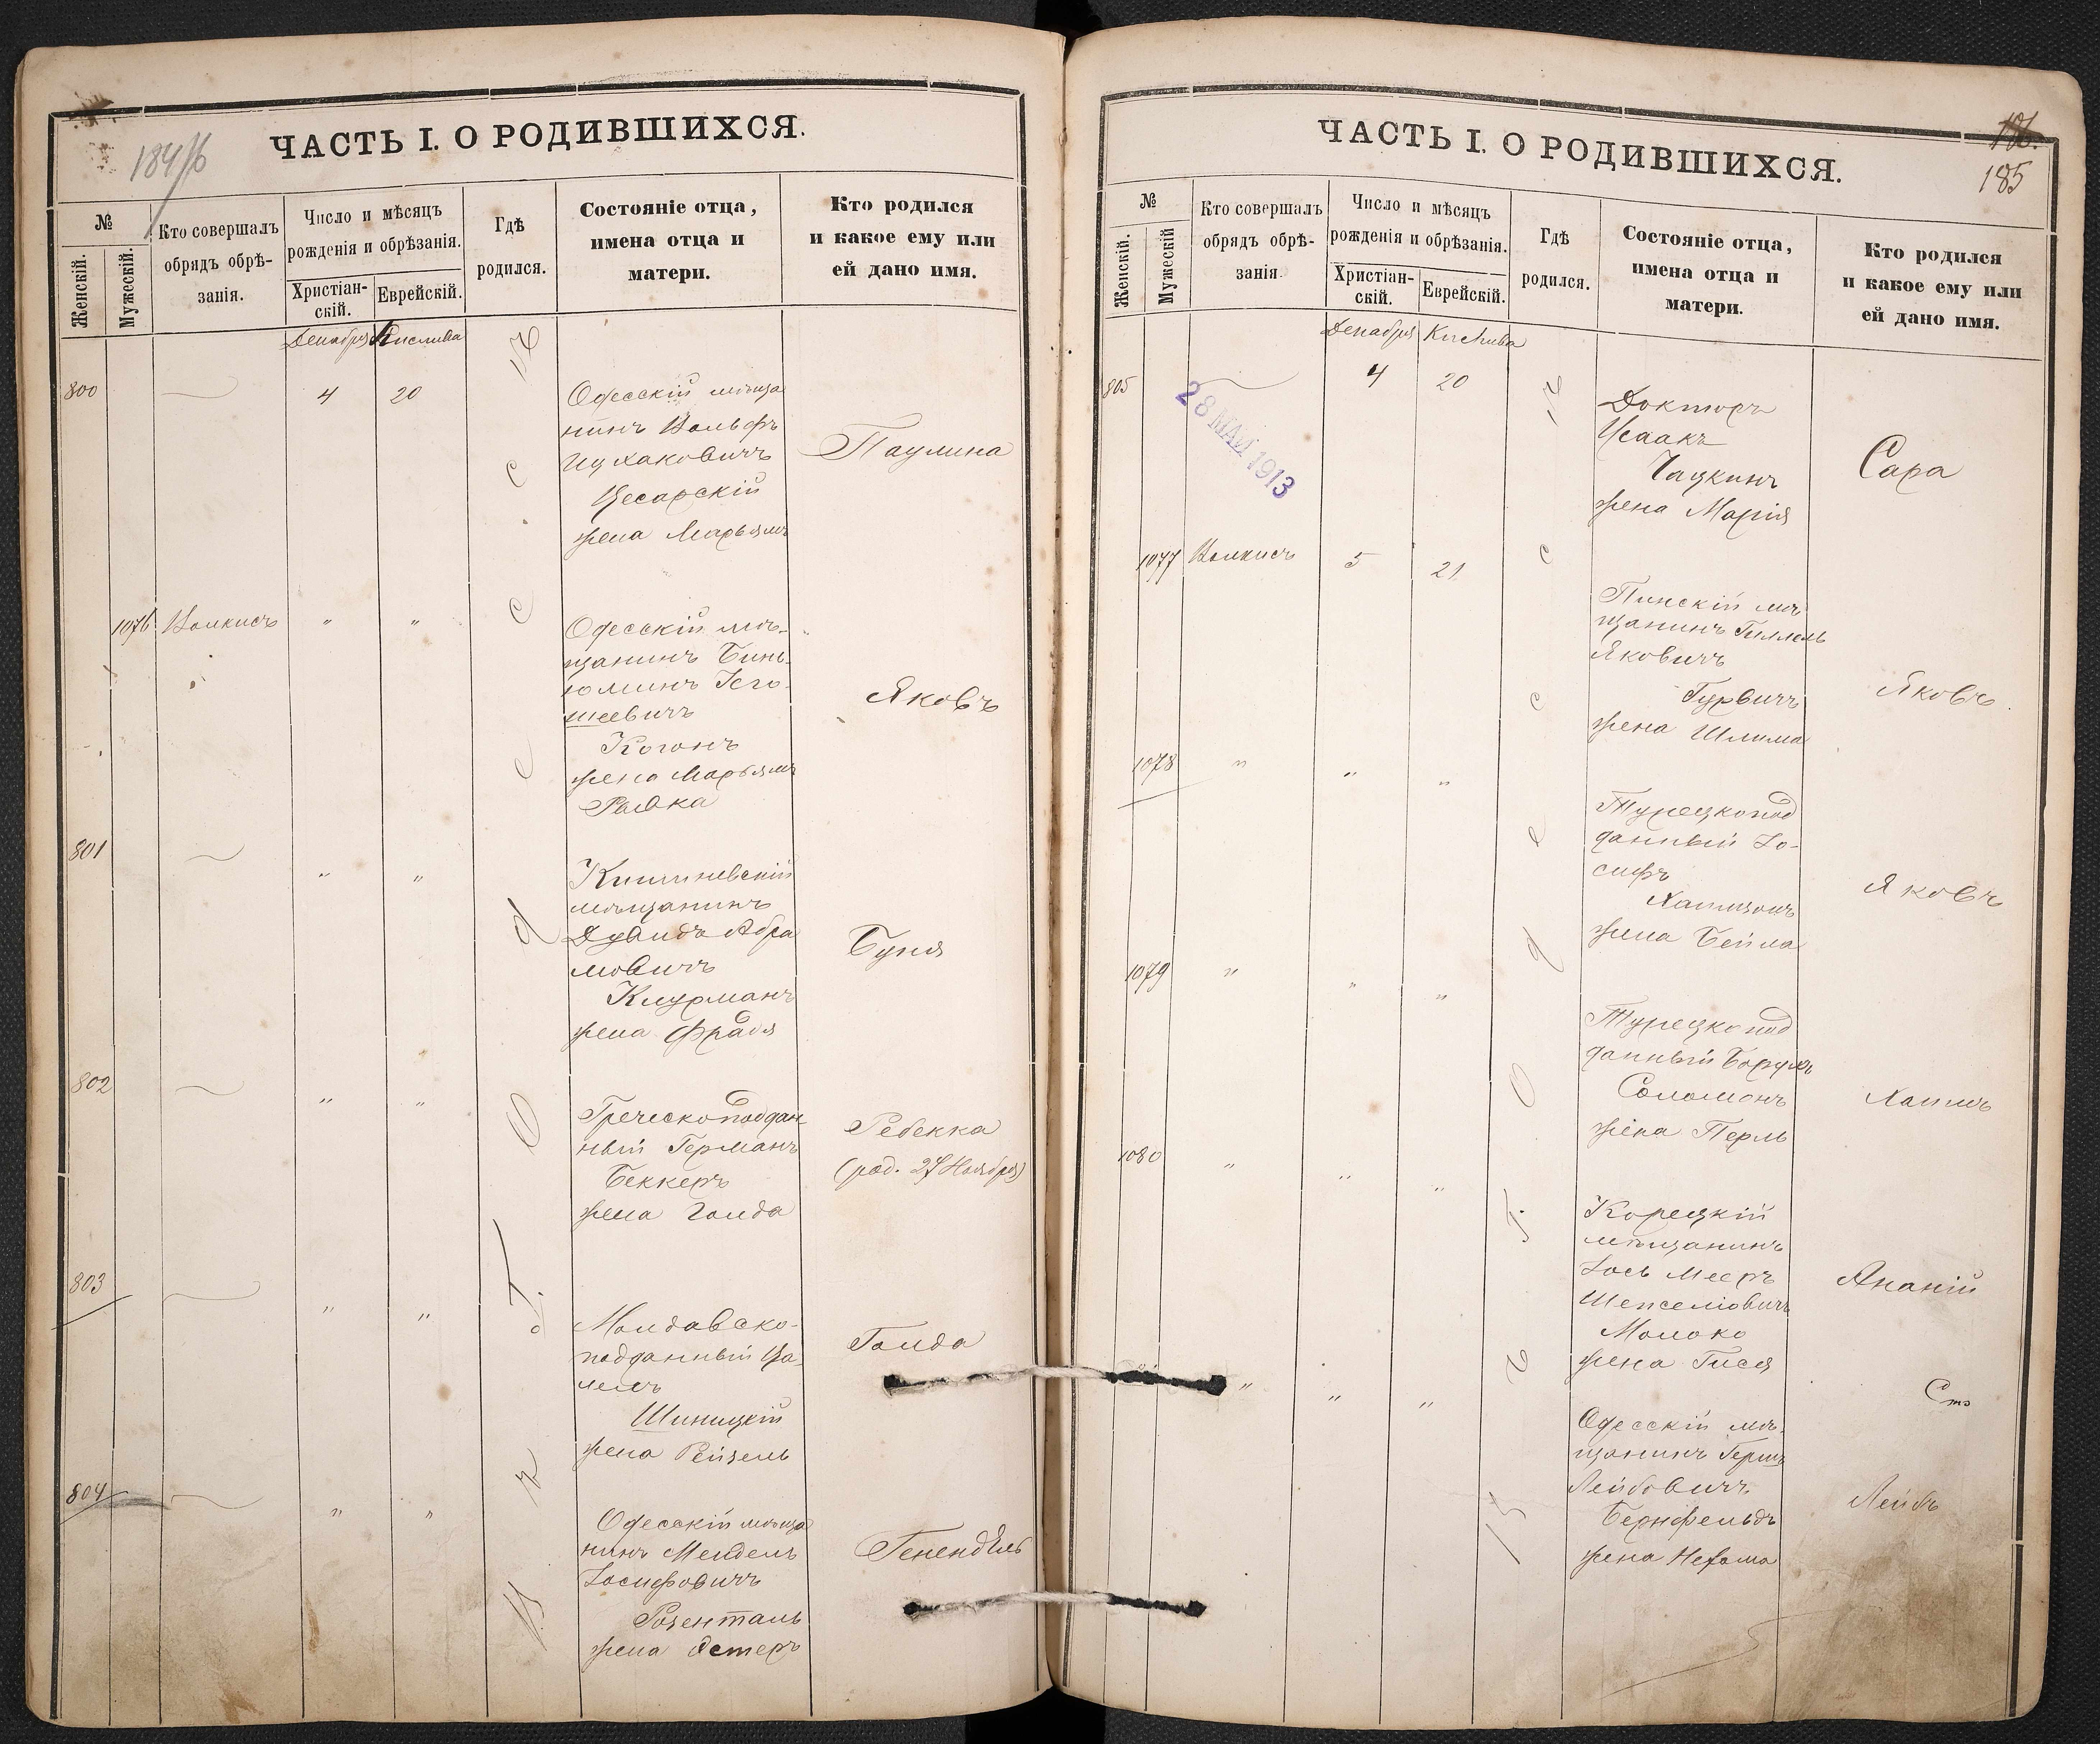 184/б
ЧАСТЬ I. О РОДИВШИХСЯ.
№
Женскій.
Мужескій.
Кто совершалъ
обрядъ обрѣ-
занія.
Число и мѣсяцъ
рожденія и обрѣзанія.
Христіан-
скій.
Еврейскій.
Гдѣ
родился.
Состояніе отца,
имена отца и
матери.
Кто родился
и какое ему или
ей дано имя.
Декабря Кислива
800
4 20
Одесскій мѣща
нинъ Вольфъ
Ицхаковичъ
Цесарскій
жена Марьямъ
Паулина
1076 Волкисъ " "
Одесскій мѣ-
щанинъ Бинь-
юминъ Іего-
шеевичъ
Когонъ
жена Марьямъ
Райка
Яковъ
801
" "
Кишиневскій
мѣщанинъ
Дувидъ Абра
мовичъ
Клурманъ
жена Фрадя
Буня
802
" "
Греческоподдан-
ный Германъ
Беккеръ
жена Голда
Ребекка
(род. 27 Ноября)
803
" "
Молдавско-
подданный Ца-
лелъ
Шиницкій
жена Рейзель
Голда
804
" "
Одесскій мѣща
нинъ Мендель
Іосифовичъ
Розенталь
жена Эстеръ
Генендель
въ Одессѣ
ЧАСТЬ I. О РОДИВШИХСЯ.
186.
185
№
Женскій.
Мужескій
Кто совершалъ
обрядъ обрѣ-
занія
Число и мѣсяцъ
рожденія и обрѣзанія.
Христіан-
скій.
Еврейскій.
Гдѣ
родился.
Состояніе отца,
имена отца и
матери.
Кто родился
и какое ему или
ей дано имя.
Декабря Кислива
805
4 20
28 МАЙ 1913
Докторъ
Исаакъ
Чацкинъ
жена Марія
Сара
1077 Волкисъ 5 21
Пинскій мѣ
щанинъ Гиллель
Яковичъ
Гурвичъ
жена Шлима
Яковъ
1078 " " "
Турецкопод
данный Іо-
сифъ
жена Бейла
Яковъ
1079 " " "
Турецкопод
данный Борухъ
Соломонъ
жена Перль
Хаимъ
1080 " " "
Корецкій
мѣщанинъ
Іось Мееръ
Шепселіовичъ
Молоко
жена Гися
Ананій
" " "
Одесскій мѣ-
щанинъ Герш
Лейбовичъ
Бернфельдъ
жена Нехама
Лейбъ